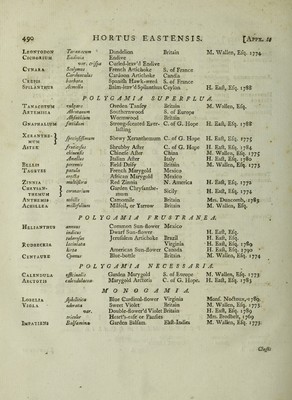 490 HORTUS EASTENSIS. [APPX. II
LEONTODON Taraxacum * Dandelion Britain M. Wallen, Esq. 1774
CICHORIUM Endivia Endive
var. crispa Curled-leav'd Endive
CYNARA Scolymus French Artichoke S. of France
Cardunculus Cardoon Artichoke Candia
barbara Spanish Hawk-weed S. of France
SPILANTHUS Acmella Balm-leav'd Spilanthus Ceylon H. East, Esq. 1788
POLYGAMIA SUPERFLUA.
TANACETUM vulgare Garden Tansey Britain M. Wallen, Esq.
ARTEMISIA Abrotanum Southernwood S. of Europe
Absinthium Wormwood Britain
GNAPHALIUM fœtidum Strong-scented Ever-lasting C. of G. Hope H. East, Esq. 1788
XERANTHEMUM speciosissimum Shewy Xeranthemum C. of G. Hope H. East, Esq. 1775
ASTER fruticosus Shrubby After C. of G. Hope H. East, Esq. 1784
chinensis Chinese After China M. Wallen, Esq. 1775
Amellus Italian After Italy H. East, Esq. 1780
BELLIS perennis Field Daisy Britain M. Wallen, Esq. 1773
TAGETES patula French Marygold Mexico
erecta African Marygold Mexico
ZINNIA multiflora Red Zinnia N. America H. East, Esq. 1772
CHRYSANTHEMUM coronarium Garden Chrysanthemum Sicily H. East, Esq. 1774
ANTHEMIS nobilis Camomile Britain Mrs. Duncomb, 1785
ACHILLEA millefolium Milfoil, or Yarrow Britain M. Wallen, Esq.
POLYGAMIA FRUSTRANEA.
HELIANTHUS annuus Common Sun-flower Mexico
indicus Dwarf Sun-flower H. East, Esq.
tuberosus Jerusalem Artichoke Brazil H. East, Esq.
RUDBECKIA laciniata Virginia H. East, Esq. 1789
hirta American Sun-flower Canada H. East, Esq. 1790
CENTAURE Cyanus Blue-bottle Britain M. Wallen, Esq. 1774
POLYGAMIA NECESSARIA.
CALENDULA officinalis Garden Marygold S. of Europe M. Wallen, Esq. 1773
ARCTOTIS calendulacea Marygold Arctotis C. of G. Hope. H. East, Esq. 1783
MONOGAMIA.
LOBELIA siphilitica Blue Cardinal-flower Virginia
VIOLA odorata Sweet Violet Britain M. Wallen, Esq. 1773
var. Double-flower'd Violet Britain H. East, Esq. 1789
tricolor Heart's-ease or Pansies Mrs. Brodbelt, 1769
IMPATIENS Balsamina Garden Balsam East-Indies M. Wallen, Esq. 1773
Classis